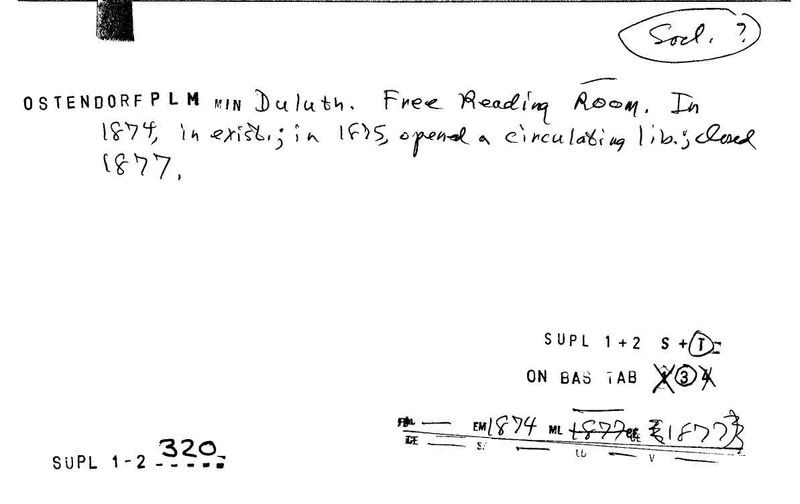 Socl. ?
OSTENDORF PLM MIN Duluth. Free Reading Room. In
1874, in exist.; in 1875, opened a circulating lib.; closed
1877.
SUPL 1+2 S + T
ON BAS TAB 1 3 4
EM 1874 ML 1877 1877
SUPL 1-2 320